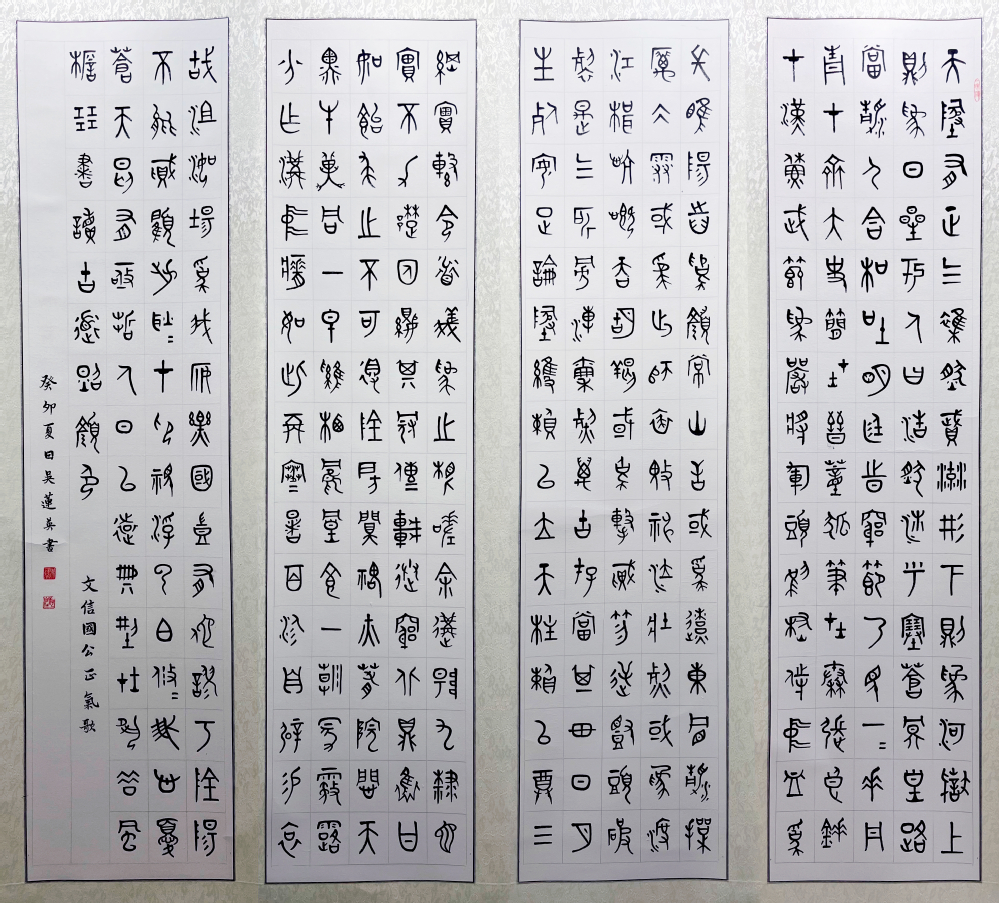 天地有正氣雜然賦流形下則為河嶽上
則為日星於人曰浩然沛乎塞蒼冥皇路
當清夷含和吐明庭時窮節乃見一一垂丹
青在齊太史簡在晉董狐筆在秦張良錐
在漢蘇武節為嚴將軍頭為嵇侍中血為
張睢陽齒為顏常山舌或為遼東帽清操
厲冰雪或為出師表鬼神泣壯烈或為渡
江楫慷慨吞胡羯或為擊賊笏逆豎頭破
裂是氣所磅礴凜烈萬古存當其貫日月
生死安足論地維賴以立天柱賴以尊三
綱實繫命道義為之根嗟余遘陽九隸也
實不力楚囚纓其冠傳車送窮北鼎鑊甘
如飴求之不可得陰房闃鬼火春院閟天
黑牛驥同一皂雞棲鳳凰食一朝蒙霧露
分作溝中瘠如此再寒暑百沴自辟易哀
哉沮洳場為我安樂國豈有他繆巧陰陽
不能賊顧此耿耿在仰視浮雲白悠悠我心憂
蒼天曷有極哲人日已遠典刑在夙昔風
簷展書讀古道照顏色
文信國公正氣歌
癸卯夏日吳蓮英書